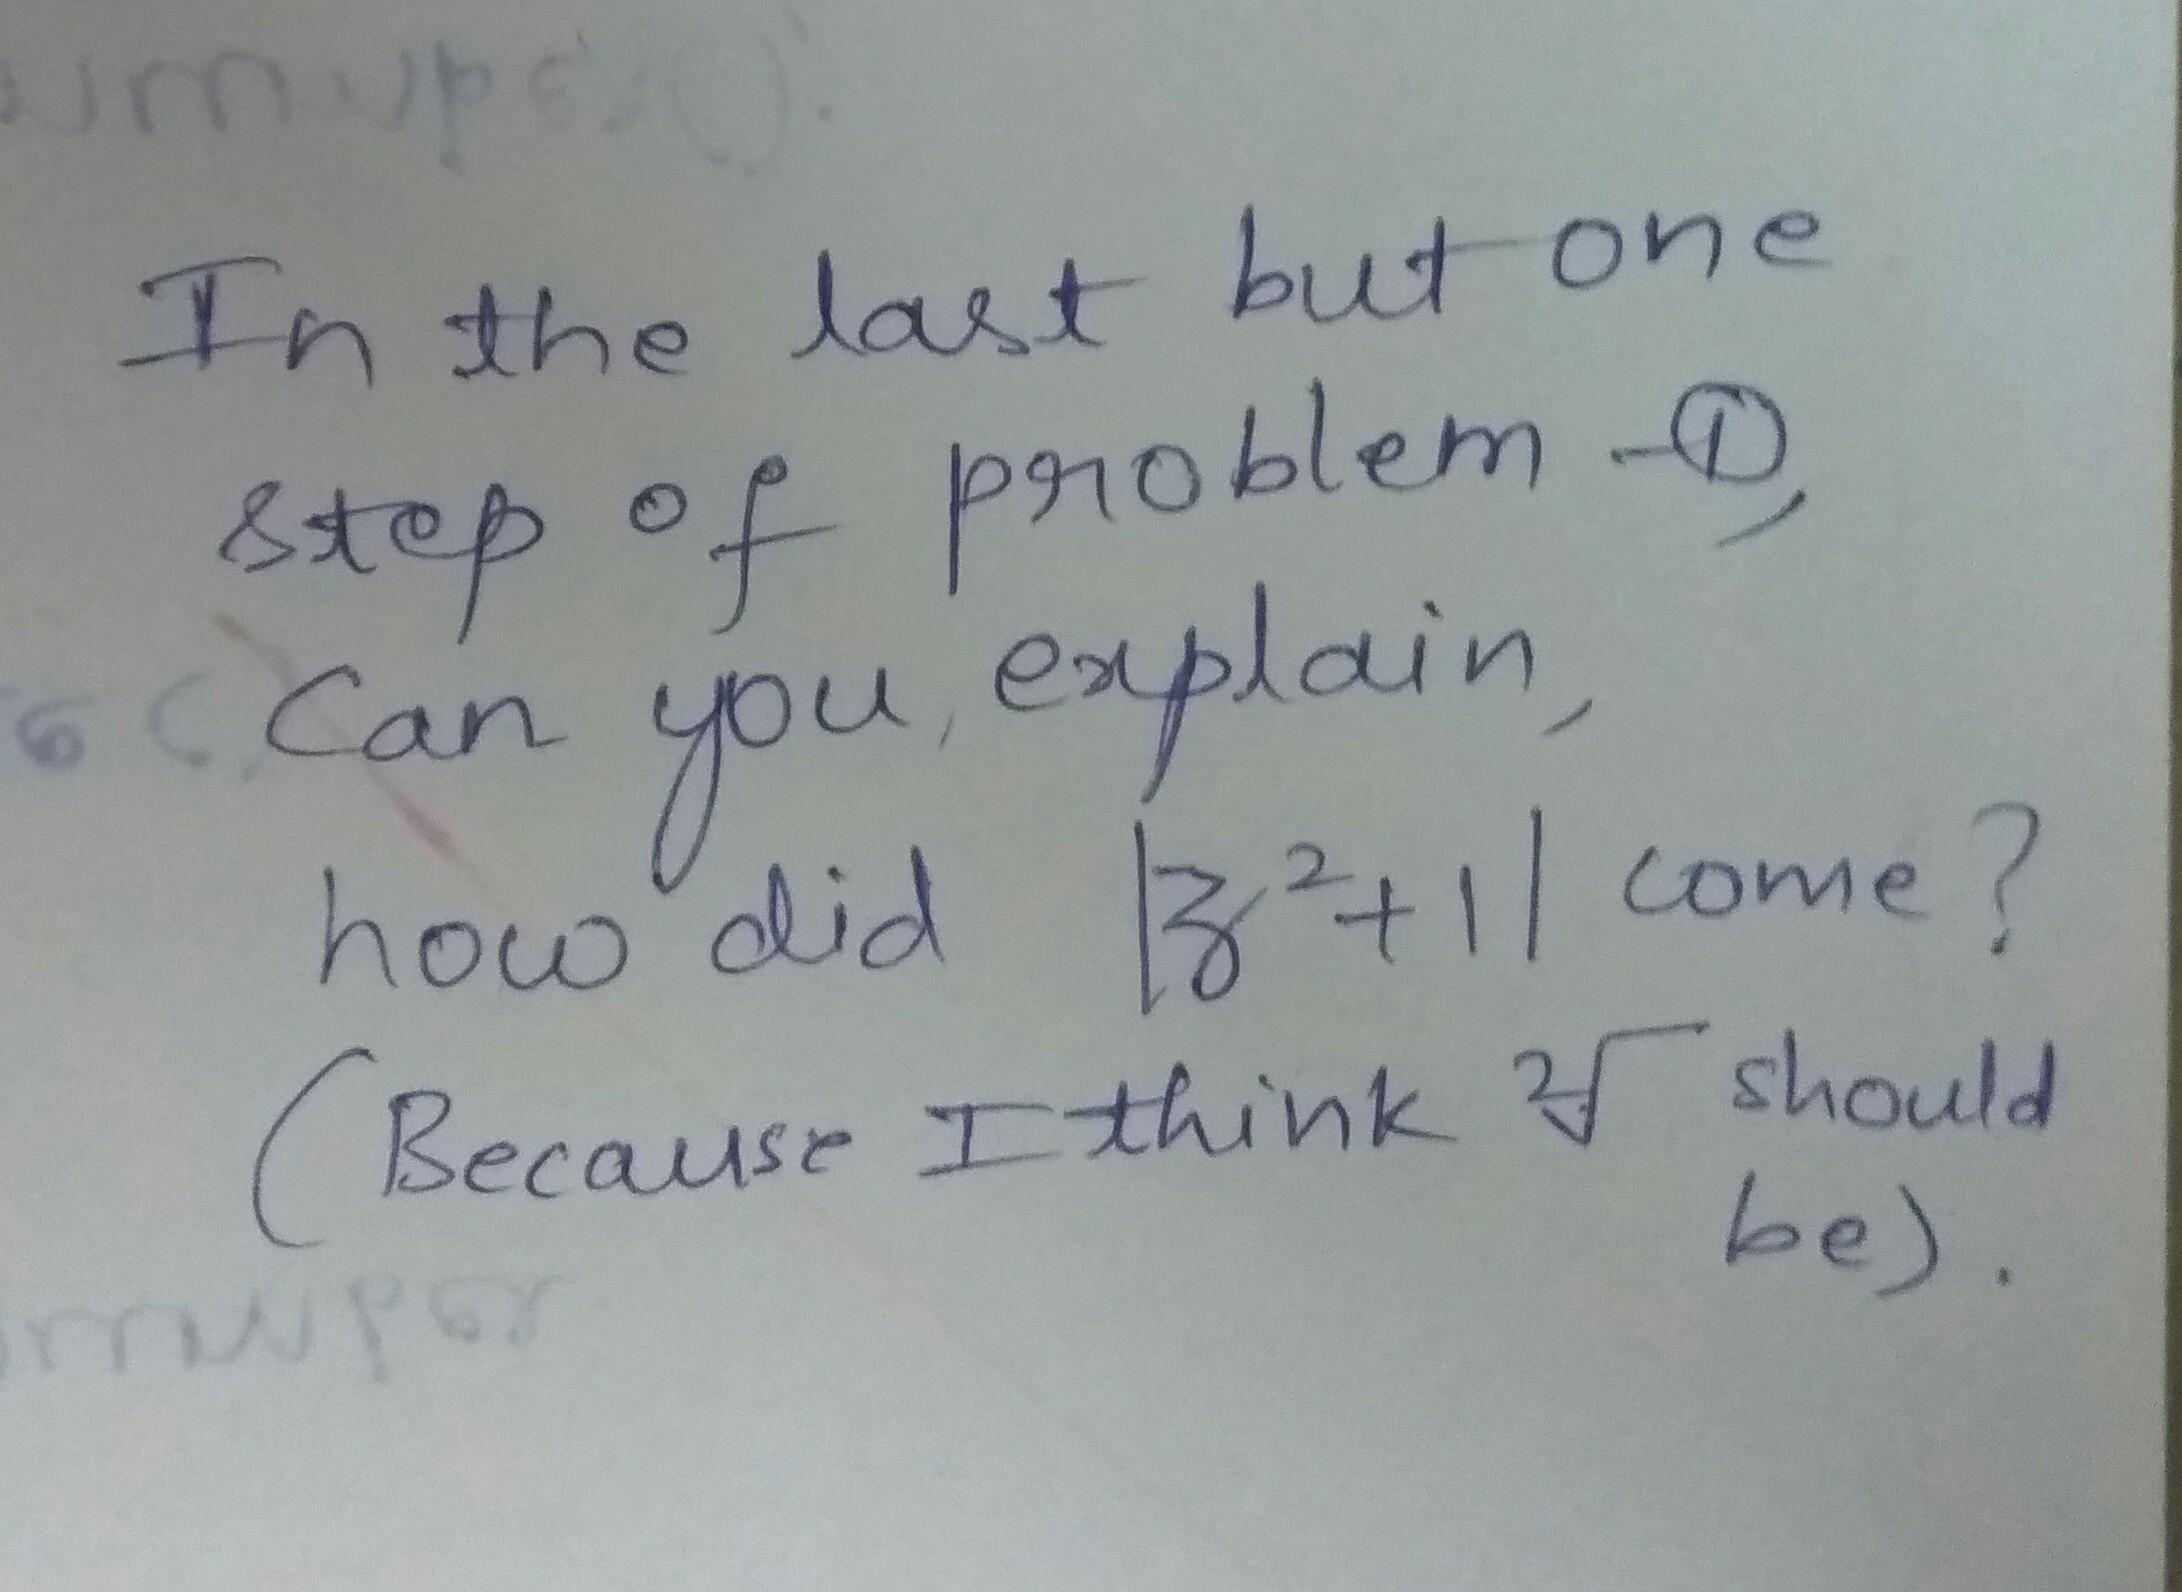 In the last but one
step of problem - ①,
Can you, explain,
how did |z²+1| come?
(Because I think 2√ should
be).